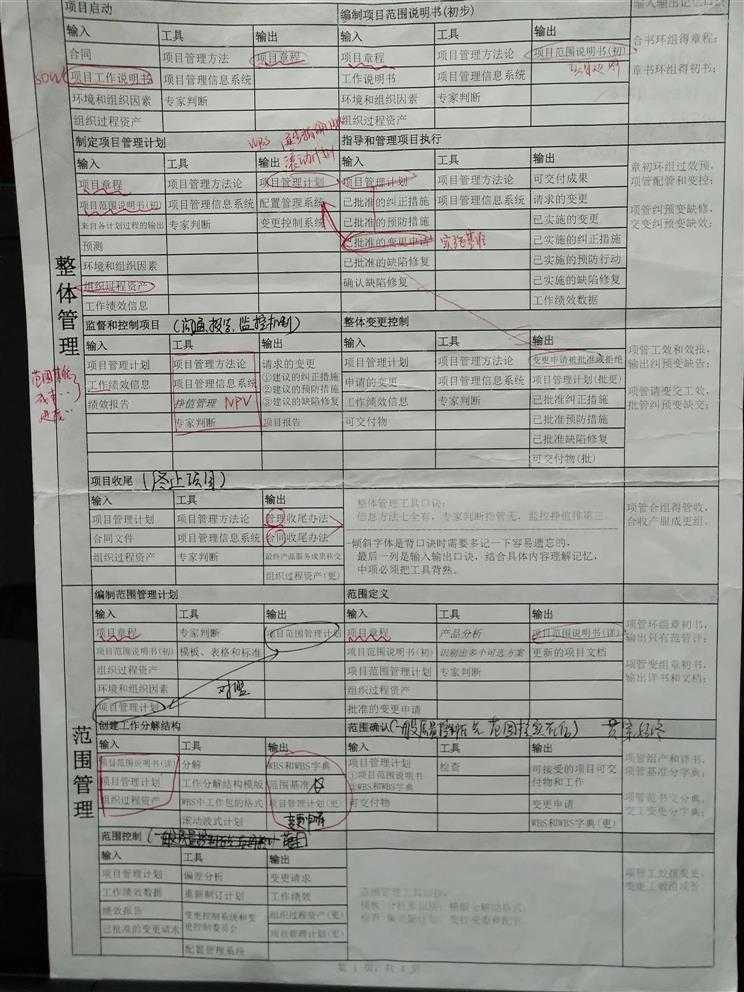 项目启动
编制项目范围说明书(初步)
输入 工具 输出 输入 工具 输出
合同 项目管理方法 项目章程 项目章程 项目管理方法论 项目范围说明书(初)
项目工作说明书 项目管理信息系统 工作说明书 项目管理信息系统
环境和组织因素 专家判断 环境和组织因素 专家判断
组织过程资产 组织过程资产
合书环组得章程;
章书环组得初书;
制定项目管理计划 WBS 滚动计划 指导和管理项目执行
输入 工具 输出 输入 工具 输出
项目章程 项目管理方法论 项目管理计划 项目管理计划 项目管理方法论 可交付成果
项目范围说明书(初) 项目管理信息系统 配置管理系统 已批准的纠正措施 项目管理信息系统 请求的变更
来自各计划过程的输出 专家判断 变更控制系统 已批准的预防措施 已实施的变更
预测 已批准的变更申请 已实施的纠正措施
环境和组织因素 已批准的缺陷修复 已实施的预防行动
组织过程资产 确认缺陷修复 已实施的缺陷修复
工作绩效信息 工作绩效数据
章初环组过效预,
项管配管和变控;
项管纠预变缺修,
交变纠预变绩效;
整体管理
监督和控制项目 整体变更控制
输入 工具 输出 输入 工具 输出
项目管理计划 项目管理方法论 请求的变更 项目管理计划 项目管理方法论 变更申请被批准或拒绝
工作绩效信息 项目管理信息系统 ①建议的纠正措施 申请的变更 项目管理信息系统 项目管理计划(批更)
绩效报告 挣值管理 NPV ②建议的预防措施 工作绩效信息 专家判断 已批准纠正措施
③建议的缺陷修复 已批准预防措施
专家判断 项目报告 可交付物 已批准缺陷修复
可交付物(批)
项管工效和效批,
输出纠预变缺告;
项管请变交工效,
批管纠预变缺交;
项目收尾 (终止项目)
输入 工具 输出
项目管理计划 项目管理方法论 管理收尾办法
合同文件 项目管理信息系统 合同收尾办法
组织过程资产 专家判断 最终产品服务成果移交
组织过程资产(更)
整体管理工具口诀:
信息方法七全有,专家判断指管无,监控挣值排第三
倾斜字体是背口诀时需要多记一下容易遗忘的,
最后一列是输入输出口诀,结合具体内容理解记忆,
中项必须把工具背熟。
项管合组得管收,
合收产服成更组。
编制范围管理计划 范围定义
输入 工具 输出 输入 工具 输出
项目章程 专家判断 项目范围管理计划 项目章程 产品分析 项目范围说明书(详)
项目范围说明书(初) 模板、表格和标准 项目范围说明书(初) 识别出多个可选方案 更新的项目文档
组织过程资产 项目范围管理计划 专家判断
环境和组织因素 组织过程资产
项目管理计划 批准的变更申请
项管环组章初书,
输出只有范管计;
项管变组章初书,
输出详书和文档;
范围管理
创建工作分解结构 范围确认
输入 工具 输出 输入 工具 输出
项目范围说明书(详) 分解 WBS和WBS字典 项目管理计划 检查 可接受的项目可交付物和工作
项目管理计划 工作分解结构模版 范围基准 ①项目范围说明书
组织过程资产 WBS中工作包的格式 项目管理计划(更) ②WBS和WBS字典
可交付物 变更申请
滚动波式计划 变更申请 WBS和WBS字典(更)
项管组产和详书,
项管基准分字典;
项管范书交分典,
交工变更分字典;
范围控制
输入 工具 输出
项目管理计划 偏差分析 变更请求
工作绩效数据 重新制订计划 工作绩效
绩效报告 变更控制系统和变更控制委员会 组织过程资产(更)
已批准的变更请求 项目管理计划(更)
配置管理系统
第 1 页,共 4 页